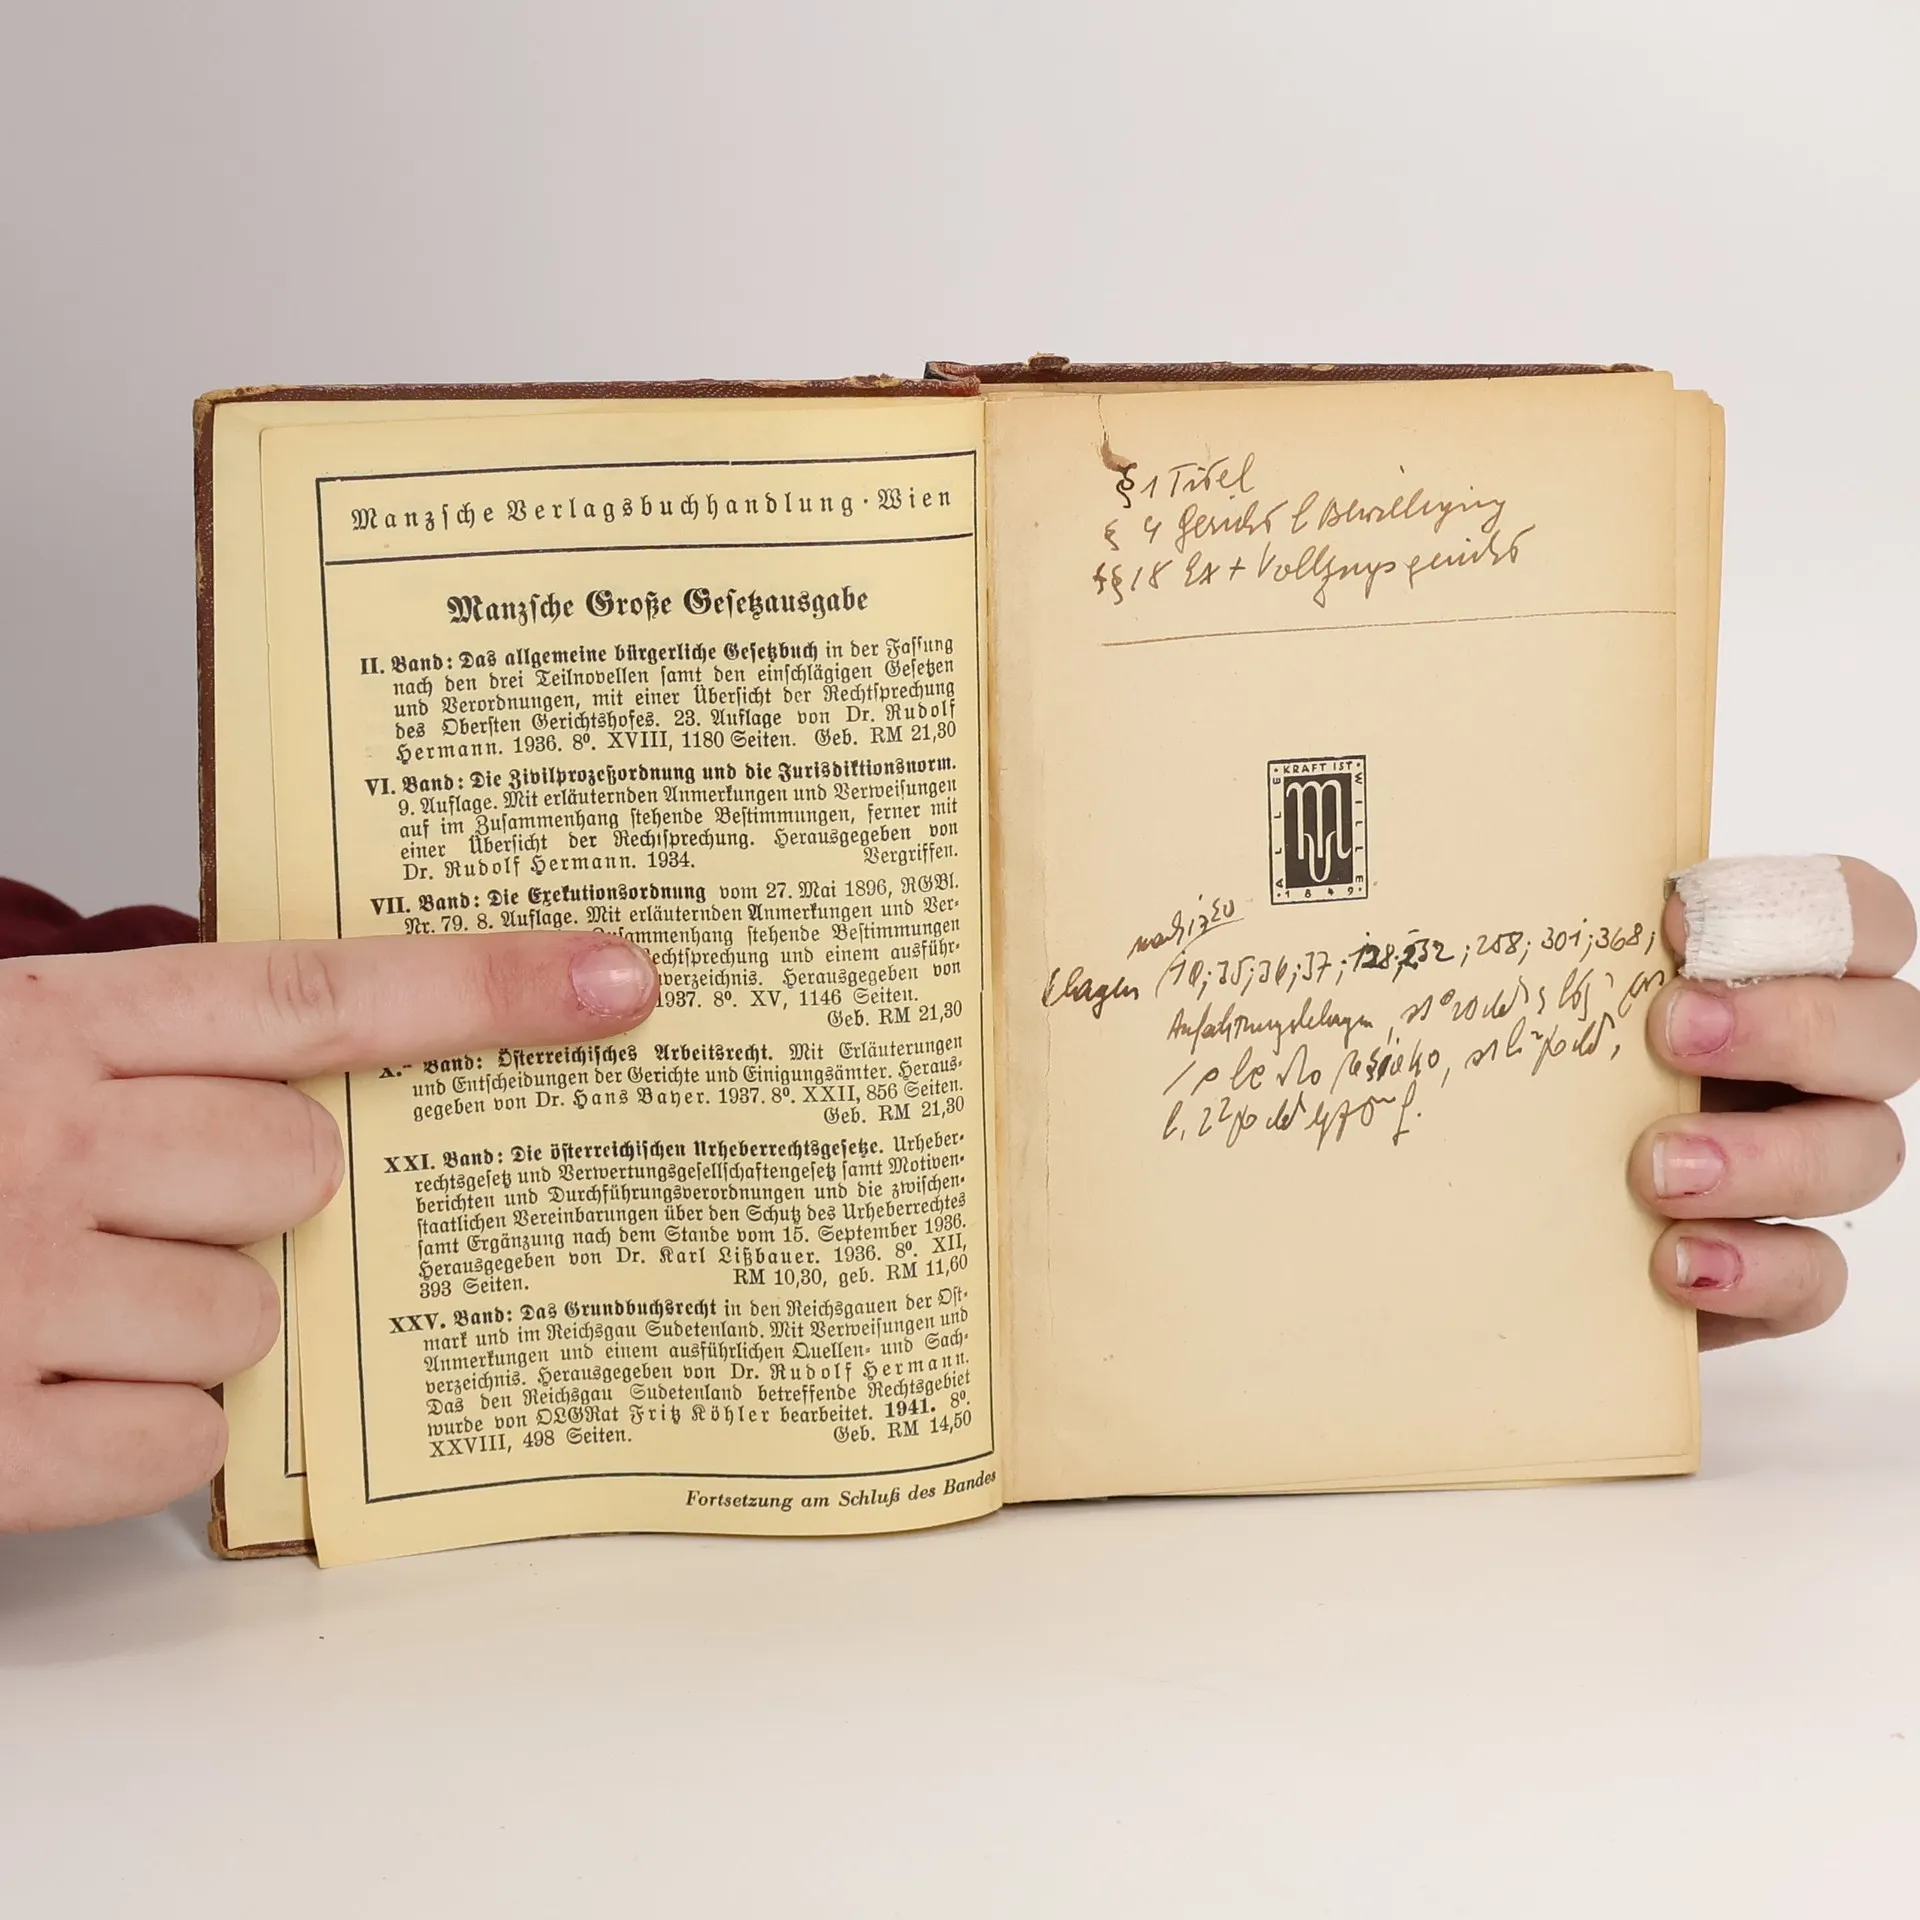 Manzsche Verlagsbuchhandlung · Wien
Manzsche Große Gesetzausgabe
II. Band: Das allgemeine bürgerliche Gesetzbuch in der Fassung
nach den drei Teilnovellen samt den einschlägigen Gesetzen
und Verordnungen, mit einer Übersicht der Rechtsprechung
des Obersten Gerichtshofes. 23. Auflage von Dr. Rudolf
Hermann. 1936. 8°. XVIII, 1180 Seiten. Geb. RM 21,30
VI. Band: Die Zivilprozeßordnung und die Jurisdiktionsnorm.
9. Auflage. Mit erläuternden Anmerkungen und Verweisungen
auf im Zusammenhang stehende Bestimmungen, ferner mit
einer Übersicht der Rechtsprechung. Herausgegeben von
Dr. Rudolf Hermann. 1934. Vergriffen.
VII. Band: Die Exekutionsordnung vom 27. Mai 1896, RGBl.
Nr. 79. 8. Auflage. Mit erläuternden Anmerkungen und Ver-
Zusammenhang stehende Bestimmungen
Rechtsprechung und einem ausführ-
verzeichnis. Herausgegeben von
1937. 8°. XV, 1146 Seiten.
Geb. RM 21,30
Band: Österreichisches Arbeitsrecht. Mit Erläuterungen
und Entscheidungen der Gerichte und Einigungsämter. Heraus-
gegeben von Dr. Hans Bayer. 1937. 8°. XXII, 856 Seiten.
Geb. RM 21,30
XXI. Band: Die österreichischen Urheberrechtsgesetze. Urheber-
rechtsgesetz und Verwertungsgesellschaftengesetz samt Motiven-
berichten und Durchführungsverordnungen und die zwischen-
staatlichen Vereinbarungen über den Schutz des Urheberrechtes
samt Ergänzung nach dem Stande vom 15. September 1936.
Herausgegeben von Dr. Karl Lißbauer. 1936. 8°. XII,
393 Seiten. RM 10,30, geb. RM 11,60
XXV. Band: Das Grundbuchsrecht in den Reichsgauen der Ost-
mark und im Reichsgau Sudetenland. Mit Verweisungen und
Anmerkungen und einem ausführlichen Quellen- und Sach-
verzeichnis. Herausgegeben von Dr. Rudolf Hermann.
Das den Reichsgau Sudetenland betreffende Rechtsgebiet
wurde von OLGRat Fritz Köhler bearbeitet. 1941. 8°.
XXVIII, 498 Seiten. Geb. RM 14,50
Fortsetzung am Schluß des Bandes
§ 1 Titel
§ 4 Bewilligung
§§ 18 Ex + Vollzugsgericht
ALLE KRAFT IST WILLE
1849
Klagen 10; 35; 36; 37; 128; 232; 258; 301; 368;